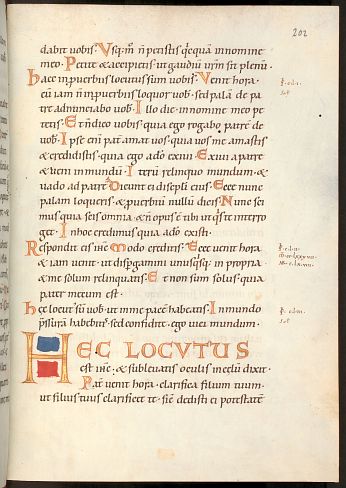 202
dabit vobis. Usq; m̄ n̄ petistis q̄cquā in nomine
meo. Petite & accipietis ut gaudiū ūr̄m sit plenū.
Haec in puerbiis locutus sum vobis. Venit hora
cū iam n̄ in puerbiis loquor vob. sed palā de pa
tre adnunciabo vob. Illo die in nomine meo pe
tetis. Et n̄ dico vobis quia ego rogabo patrē de
vob. Ipse enī pat̄ amat vos quia vos me amastis
& credidistis quia ego a dō exivi. Exivi a patre
& veni in mundū. Iterū relinquo mundum &
vado ad patrē. Dicunt ei discipli eius. Ecce nunc
palam loqueris & puerbiū nullū dicis. Nunc sci
mus quia scis omnia & n̄ opus ē tibi ut q̄s te interro
get. In hoc credimus quia a dō existi.
Respondit eis ih̄c. Modo creditis. Ecce venit hora
& iam venit ut dispgamini unusq̄sq; in propria
& me solum relinquatis. Et non sum solus quia
pater mecum est.
Haec locut sū vob ut in me pacē habeatis. In mundo
p̄ssurā habebitis sed confidite. ego vici mundum.
HEC LOCUTUS
est ih̄c. & sublevatis oculis in celū dixit.
Pat̄ venit hora. clarifica filium tuum
ut filius tuus clarificet te. sic̄ dedisti ei potestatē